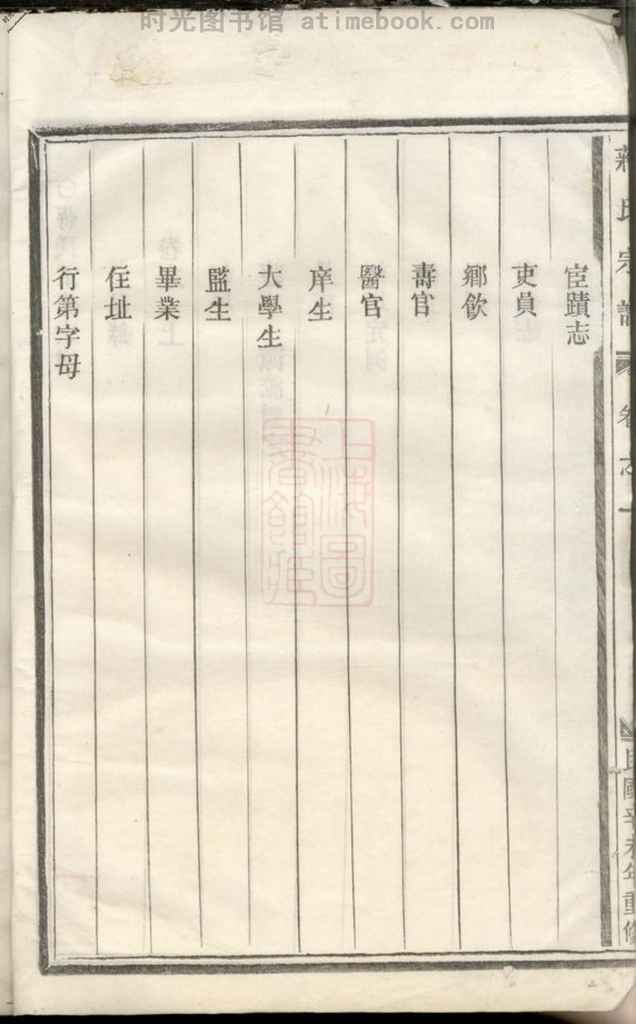 时光图书馆 atimebook.com
蔣氏宗譜 卷之一 民國辛未年重修
宦蹟志
吏員
鄉飲
壽官
醫官
庠生
大學生
監生
畢業
住址
行第字母
上海圖書館藏